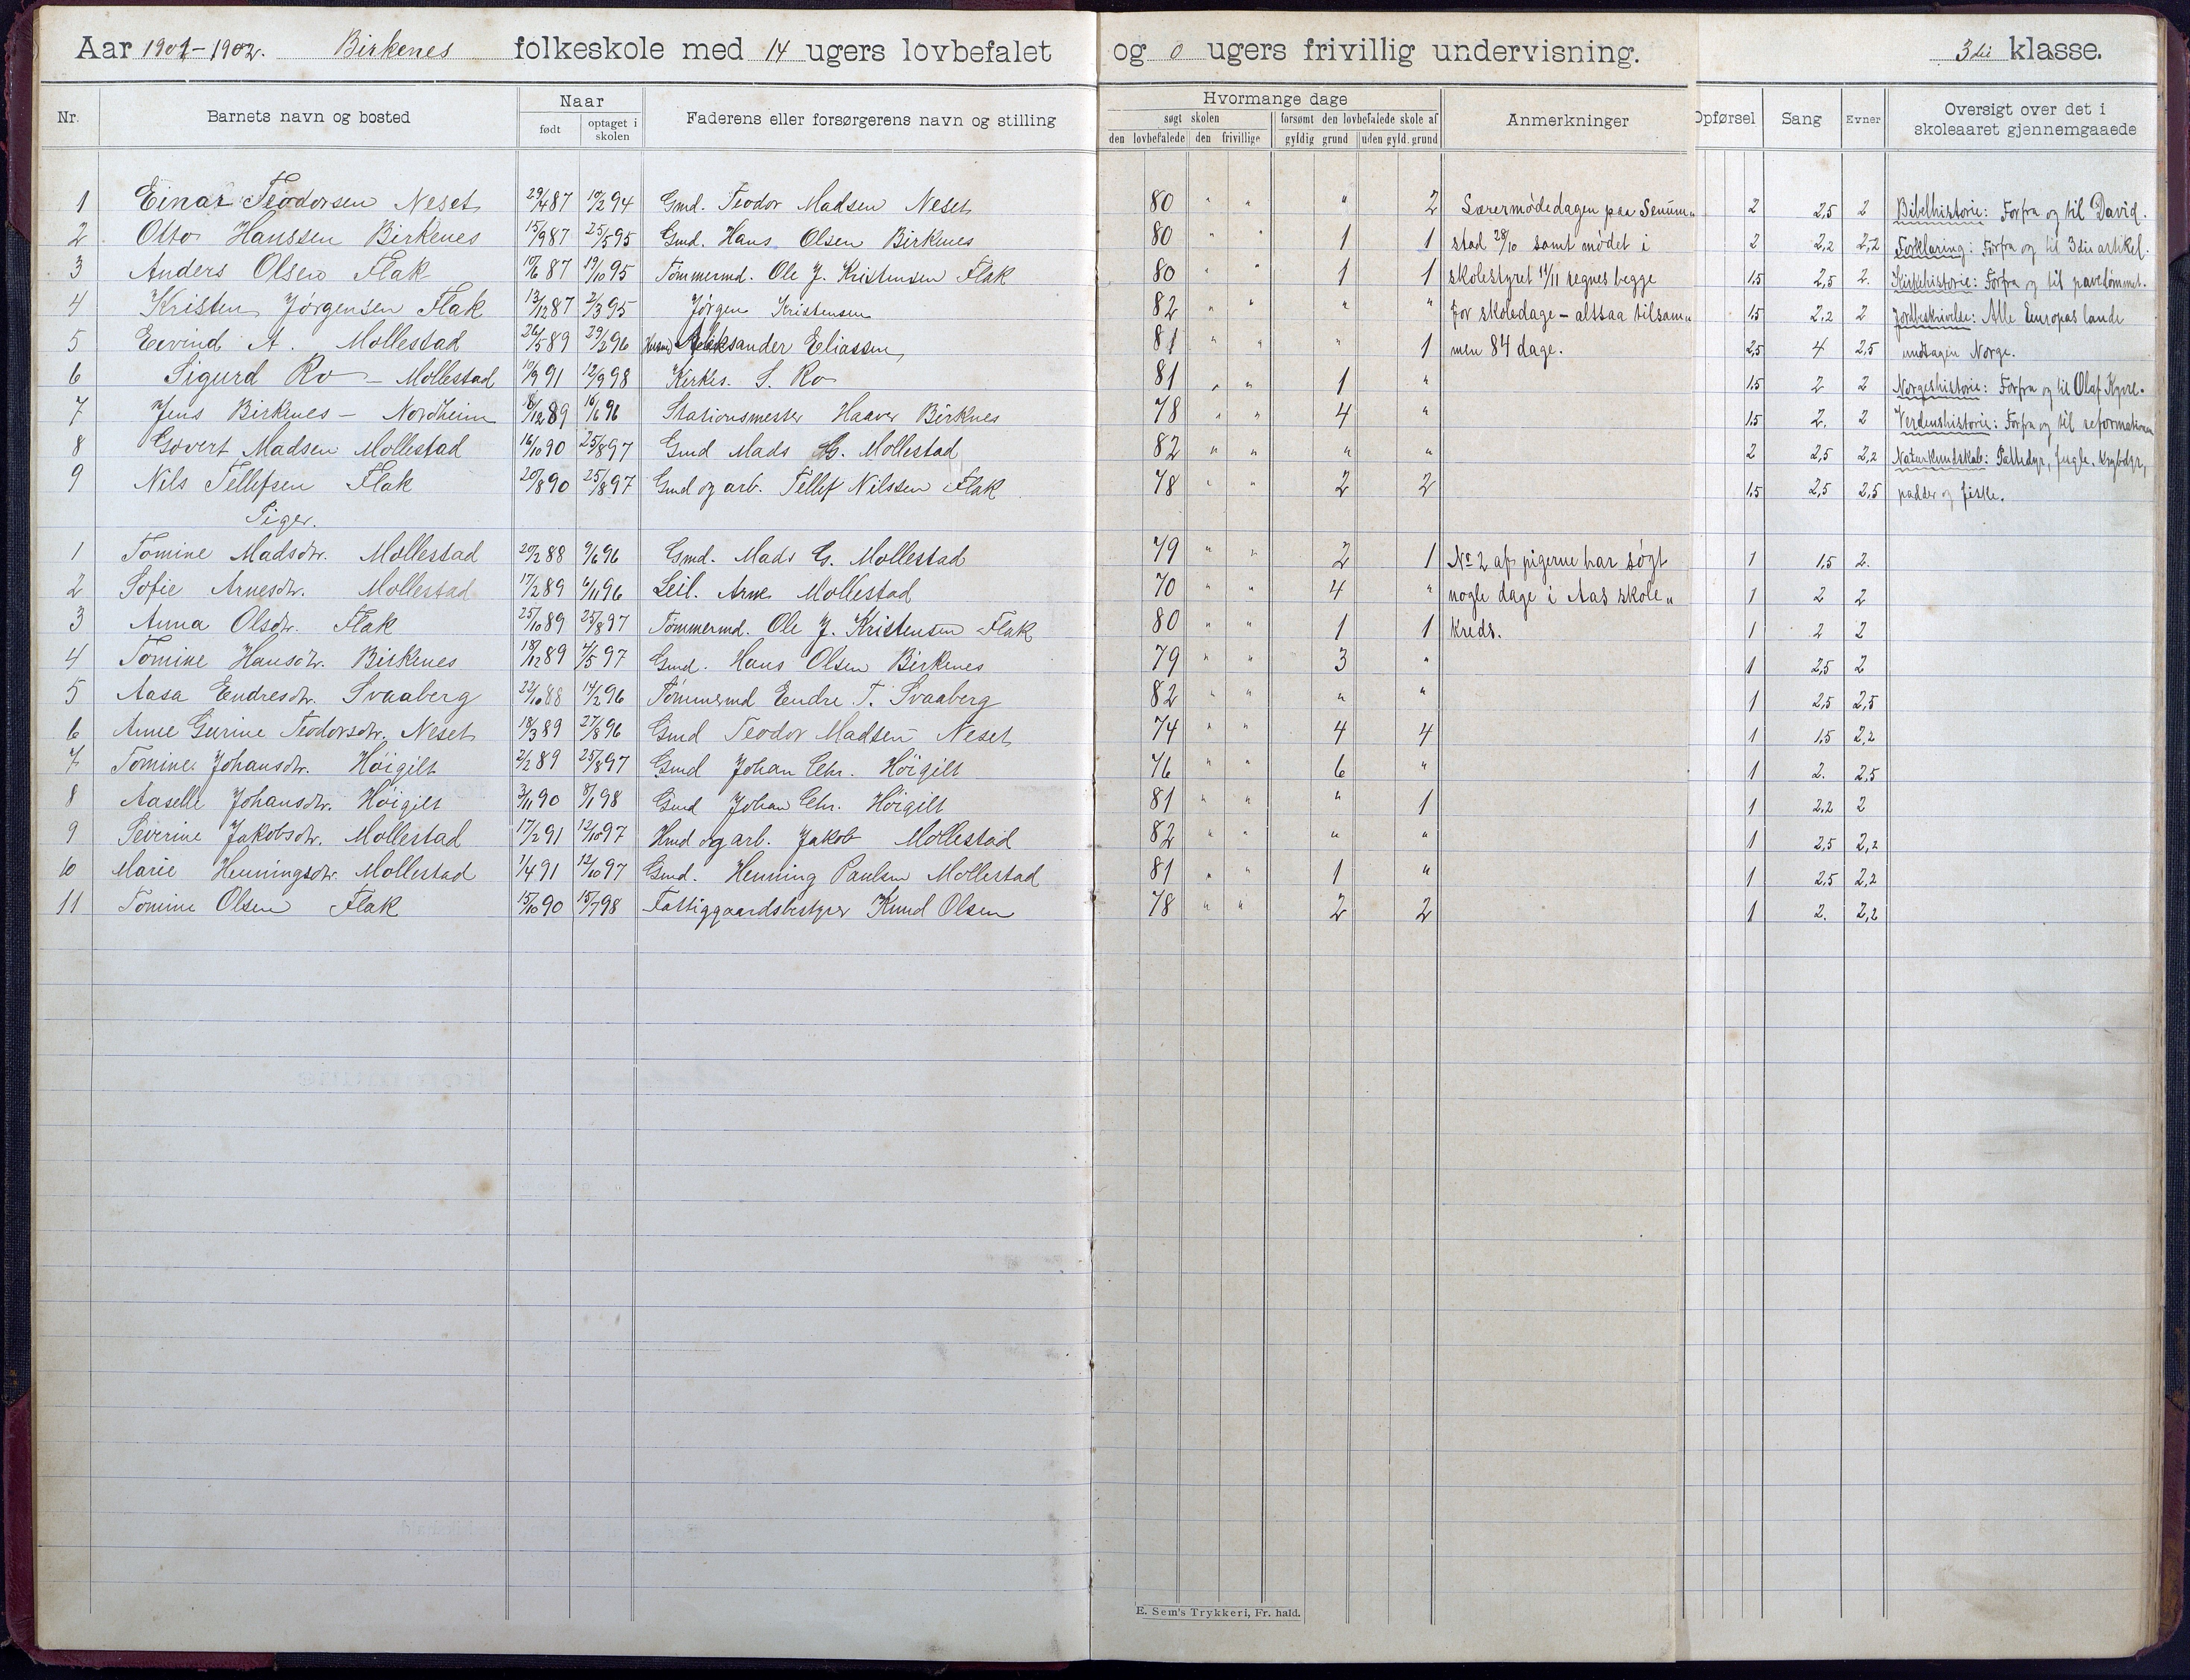 Aar 1901-1902. Birkenes folkeskole med 14 ugers lovbefalet og 0 ugers frivillig undervisning. 3die klasse.
Nr. Barnets navn og bosted Naar født optaget i skolen Faderens eller forsørgerens navn og stilling Hvormange dage søgt skolen den lovbefalede den frivillige forsømt den lovbefalede skole af gyldig grund uden gyld. grund Anmerkninger Opførsel Sang Evner Oversigt over det i skoleaaret gjennemgaaede
1 Einar Teodorsen Neset 29/4 87 19/2 94 Gmd. Teodor Madsen Neset 80 " " " 2 Lærermødedagen paa Senum- 2 2,5 2 Bibelhistorie: Forfra og til David.
2 Otto Hanssen Birkenes 15/9 87 25/5 95 Gmd. Hans Olsen Birkenes 80 " " 1 1 stad 28/10 samt mødet i 2 2,2 2,2 Forklaring: Forfra og til 3die artikel.
3 Anders Olsen Flak 19/6 87 19/10 95 Tømmermd. Ole J. Kristensen Flak 80 " " 1 1 skolestyret 11/11 regnes begge 1,5 2,5 2. Kirkehistorie: Forfra og til pavedømmet.
4 Kristen Jørgensen Flak 13/12 87 2/3 95 Jørgen Kristensen 82 " " " " for skoledage - altsaa tilsam- 1,5 2,2 2 Jordbeskrivelse: Alle Europas lande
5 Eivind A. Mollestad 26/5 89 29/2 96 Husmd Aleksander Eliassen 81 " " " 1 men 84 dage. 2,5 4 2,5 undtagen Norge.
6 Sigurd Ro - Mollestad 10/9 91 12/9 98 Kirkes. S. Ro 81 " " 1 " 1,5 2 2 Norgeshistorie: Forfra og til Olaf Kyrre.
7 Jens Birkenes - Nordheim 8/12 89 16/6 96 Stationsmester Haaver Birknes 78 " " 4 " 1,5 2. 2 Verdenshistorie: Forfra og til reformationen
8 Govert Madsen Mollestad 16/10 90 25/8 97 Gmd Mads G. Mollestad 82 " " " " 2 2,5 2,2 Naturkundskab: Pattedyr, fugle, krybdyr,
9 Nils Tellefsen Flak 20/8 90 25/8 97 Gmd og arb. Tellef Nilssen Flak 78 " " 2 2 1,5 2,5 2,5 padder og fiske.
Piger.
1 Tomine Madsdtr. Mollestad 20/2 88 9/6 96 Gmd. Mads G. Mollestad 79 " " 2 1 No 2 af pigerne har søgt 1 1,5 2.
2 Sofie Arnesdtr. Mollestad 17/2 89 6/11 96 Leil. Arne Mollestad 70 " " 4 " nogle dage i Aas skole- 1 2 2
3 Anna Olsdtr. Flak 25/10 89 25/8 97 Tømmermd. Ole J. Kristensen Flak 80 " " 1 1 kreds. 1 2 2
4 Tomine Hansdtr. Birkenes 18/12 89 4/5 97 Gmd. Hans Olsen Birkenes 79 " " 3 " 1 2,5 2
5 Aasa Endresdtr. Svaaberg 22/10 88 14/2 96 Tømmermd Endre T. Svaaberg 82 " " " " 1 2,5 2,5
6 Anne Gurine Teodorsdtr. Neset 18/3 89 27/8 96 Gmd Teodor Madsen Neset 74 " " 4 4 1 1,5 2,2
7 Tomine Johansdtr. Høigilt 2/2 89 25/8 97 Gmd Johan Chr. Høigilt 76 " " 6 " 1 2. 2,5
8 Aaselle Johansdtr. Høigilt 3/11 90 8/1 98 Gmd Johan Chr. Høigilt 81 " " " 1 1 2,2 2
9 Severine Jakobsdtr. Mollestad 17/2 91 12/10 97 Hmd og arb. Jakob Mollestad 82 " " " " 1 2,5 2,2
10 Marie Henningsdtr. Mollestad 1/4 91 12/10 97 Gmd. Henning Paulsen Mollestad 81 " " 1 " 1 2,5 2,2
11 Tomine Olsen Flak 15/10 90 15/7 98 Fattiggaardsbestyrer Knud Olsen 78 " " 2 2 1 2. 2,2
E. Sem's Trykkeri, Fr. hald.